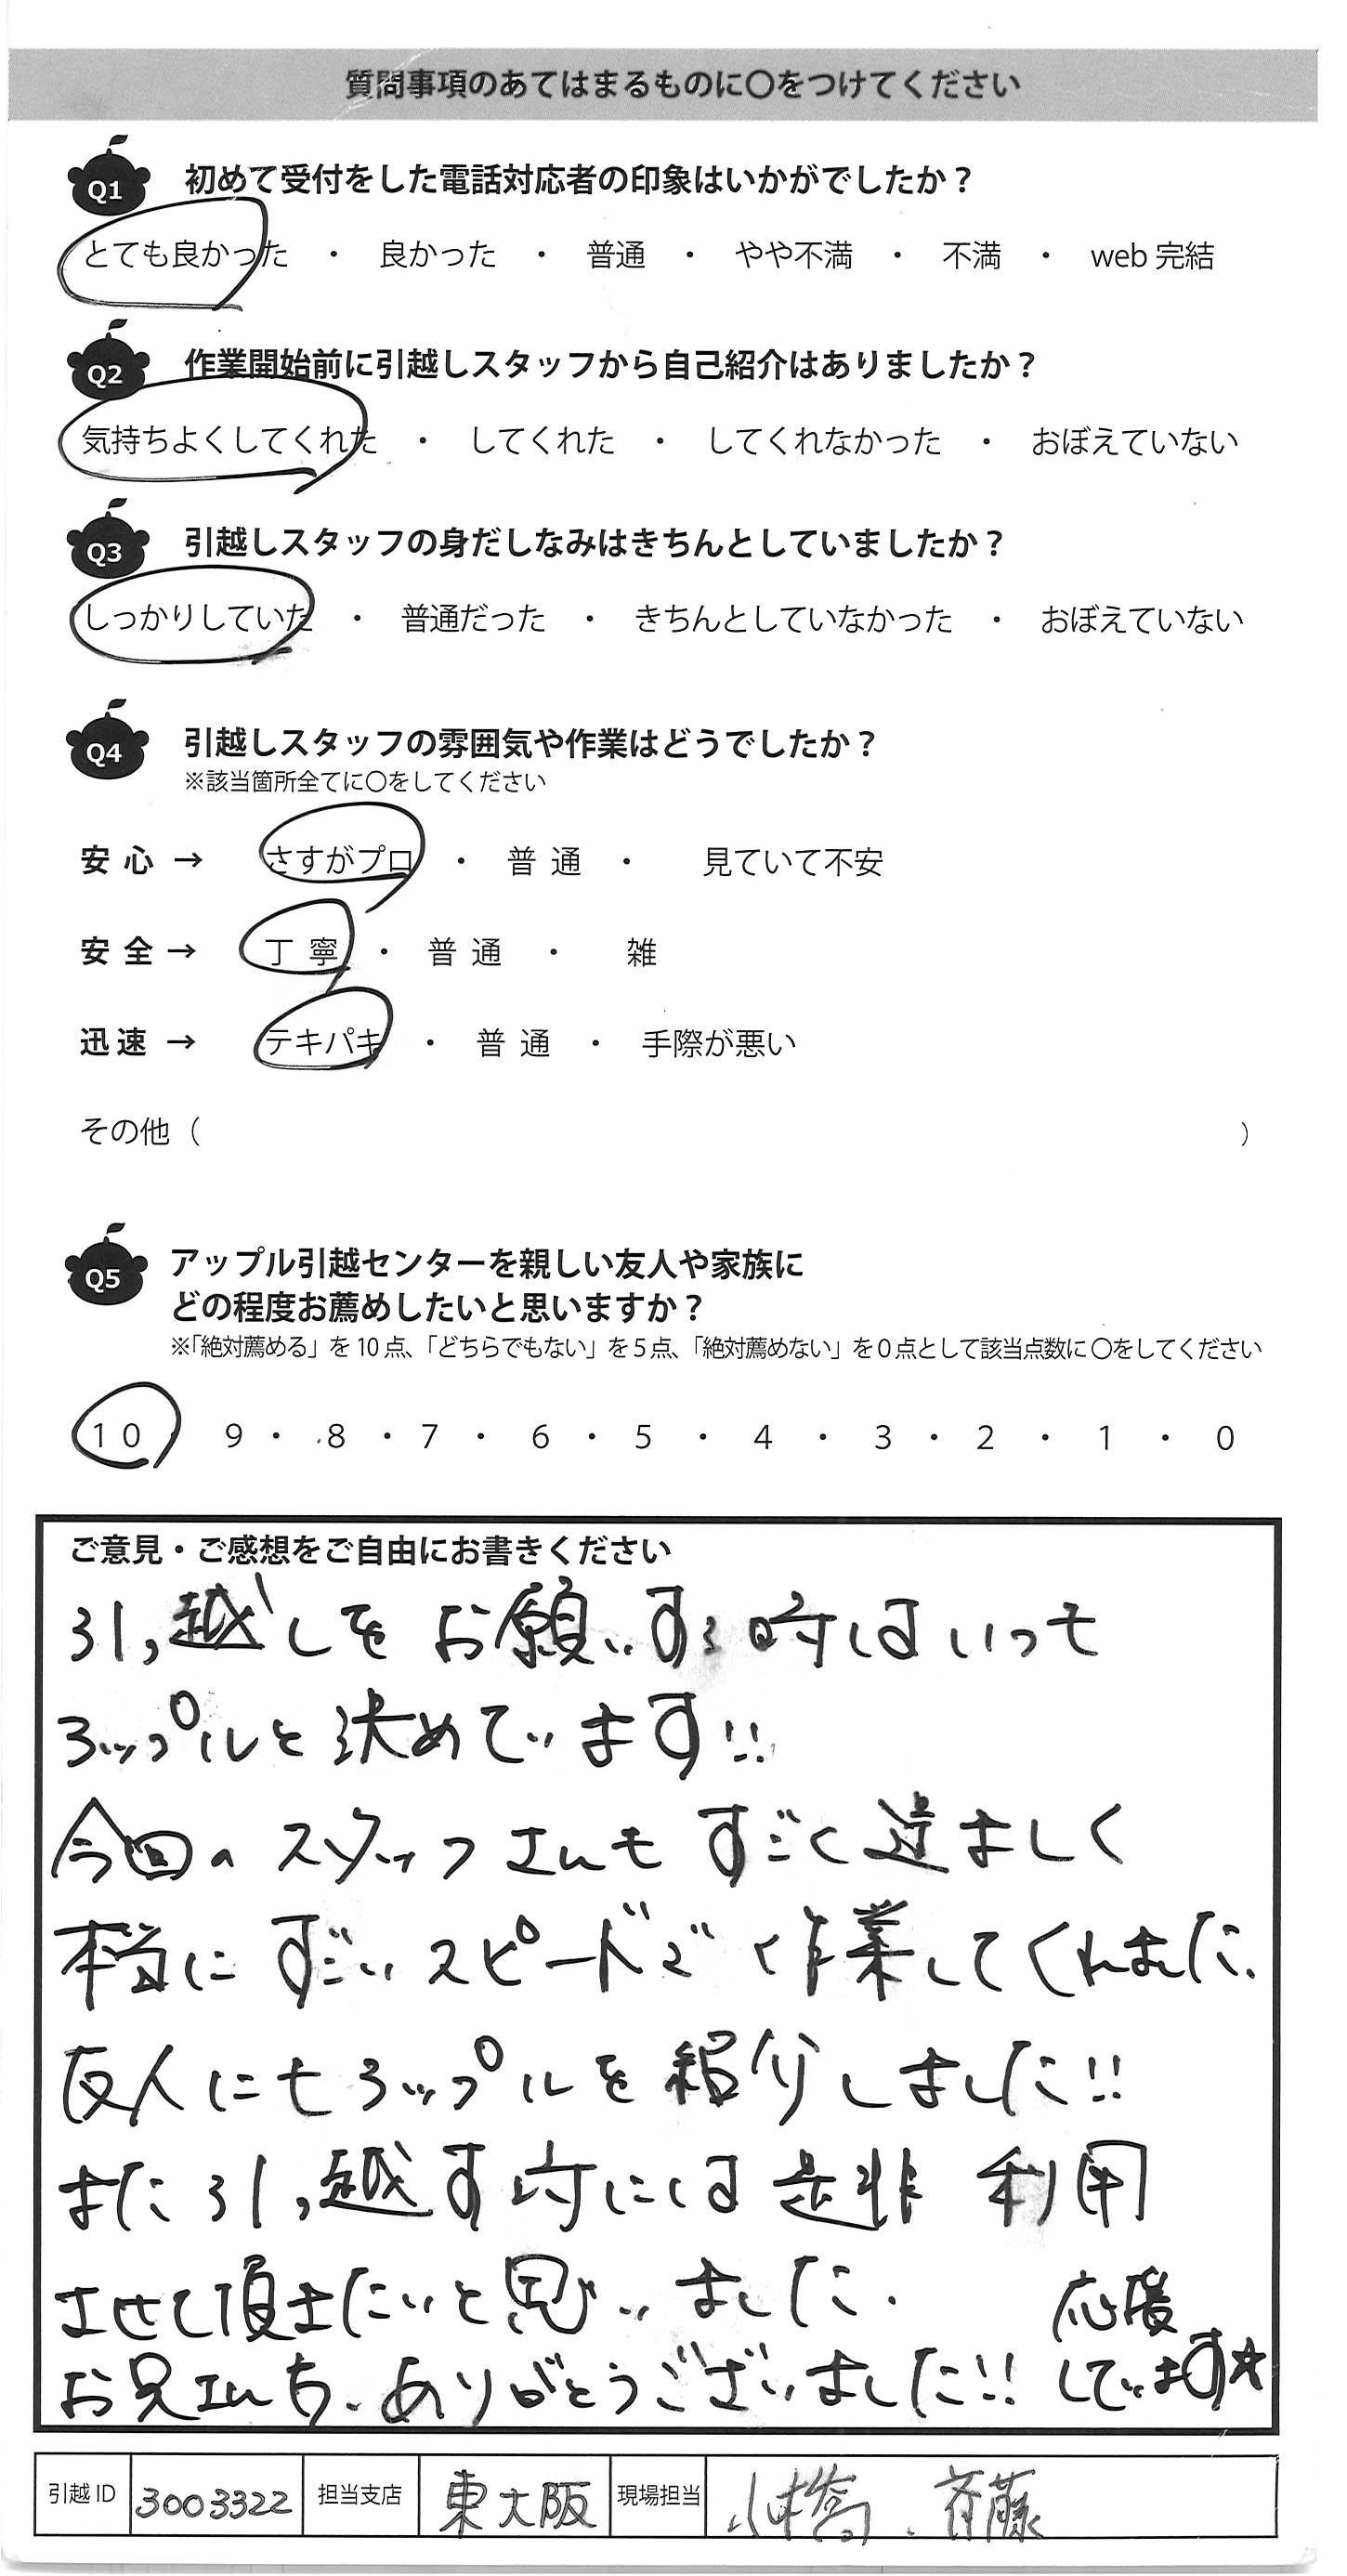 質問事項のあてはまるものに〇をつけてください
Q1 初めて受付をした電話対応者の印象はいかがでしたか？
とても良かった ・ 良かった ・ 普通 ・ やや不満 ・ 不満 ・ web 完結
Q2 作業開始前に引越しスタッフから自己紹介はありましたか？
気持ちよくしてくれた ・ してくれた ・ してくれなかった ・ おぼえていない
Q3 引越しスタッフの身だしなみはきちんとしていましたか？
しっかりしていた ・ 普通だった ・ きちんとしていなかった ・ おぼえていない
Q4 引越しスタッフの雰囲気や作業はどうでしたか？
※該当箇所全てに〇をしてください
安心 → さすがプロ ・ 普通 ・ 見ていて不安
安全 → 丁寧 ・ 普通 ・ 雑
迅速 → テキパキ ・ 普通 ・ 手際が悪い
その他（ ）
Q5 アップル引越センターを親しい友人や家族に
どの程度お薦めしたいと思いますか？
※「絶対薦める」を10点、「どちらでもない」を5点、「絶対薦めない」を0点として該当点数に〇をしてください
10 9 ・ 8 ・ 7 ・ 6 ・ 5 ・ 4 ・ 3 ・ 2 ・ 1 ・ 0
ご意見・ご感想をご自由にお書きください
引っ越しをお願いする時はいつも
アップルと決めています!!
今回のスタッフさんもすごく逞ましく
本当にすごいスピードで作業してくれました.
友人にもアップルを紹介しました!!
また引っ越す時には是非利用
させて頂きたいと思いました.
お兄さんたち、ありがとうございました!! 応援
しています☆
引越ID 3003322 担当支店 東大阪 現場担当 小橋、斉藤